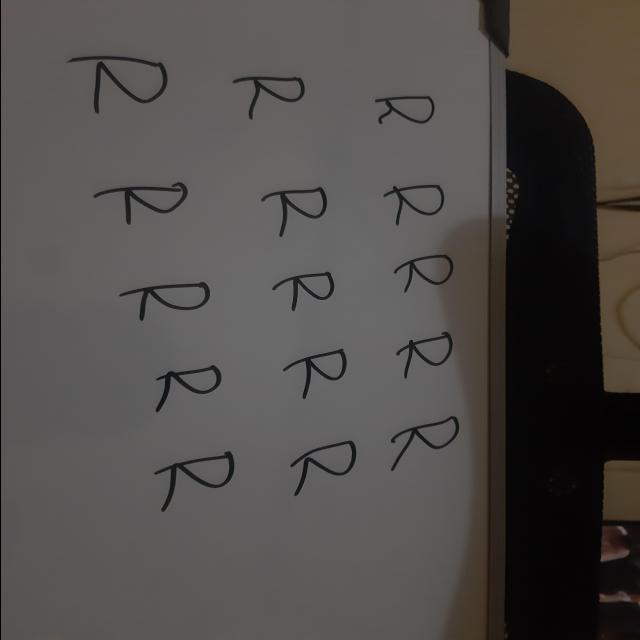 R R R
R R R
R R R
R R R
R R R